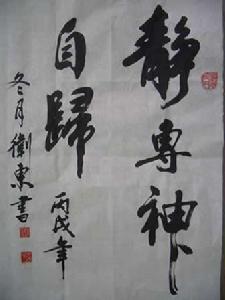 靜專神
自歸
丙戌年
冬月衛東書